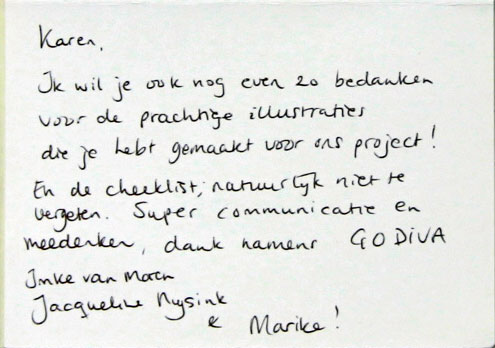 Karen,
Ik wil je ook nog even zo bedanken
voor de prachtige illustraties
die je hebt gemaakt voor ons project!
En de checklist, natuurlijk niet te
vergeten. Super communicatie en
meedenken, dank namens GODIVA
Imke van
Jacqueline Nysink
& Marike!